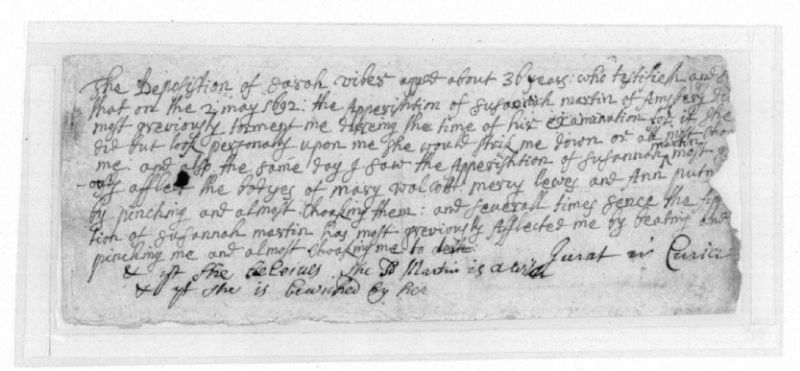 The Deposistion of Sarah viber agged about 36 years: who testifieth and s
that on the 2: may 1692: the Apperishtion of Susannah martin of Amsbery did
most greviously torment me dureing the time of hir examination for if she
did but look personaly upon me she would strik me down or allmost choak
me and also the same day I saw the Apperishtion of Susannah martin most g
ously afflect the bodyes of mary walcott mercy lewes and Ann putn
by pinching and almost choaking them: and severall times sence the App
tion of Susannah martin has most greviously afflected me by beating and
pinching me and almost choaking me to death
& yt she beleives the sd Martin is a wich Jurat in Curia
& yt she is bewiched by her